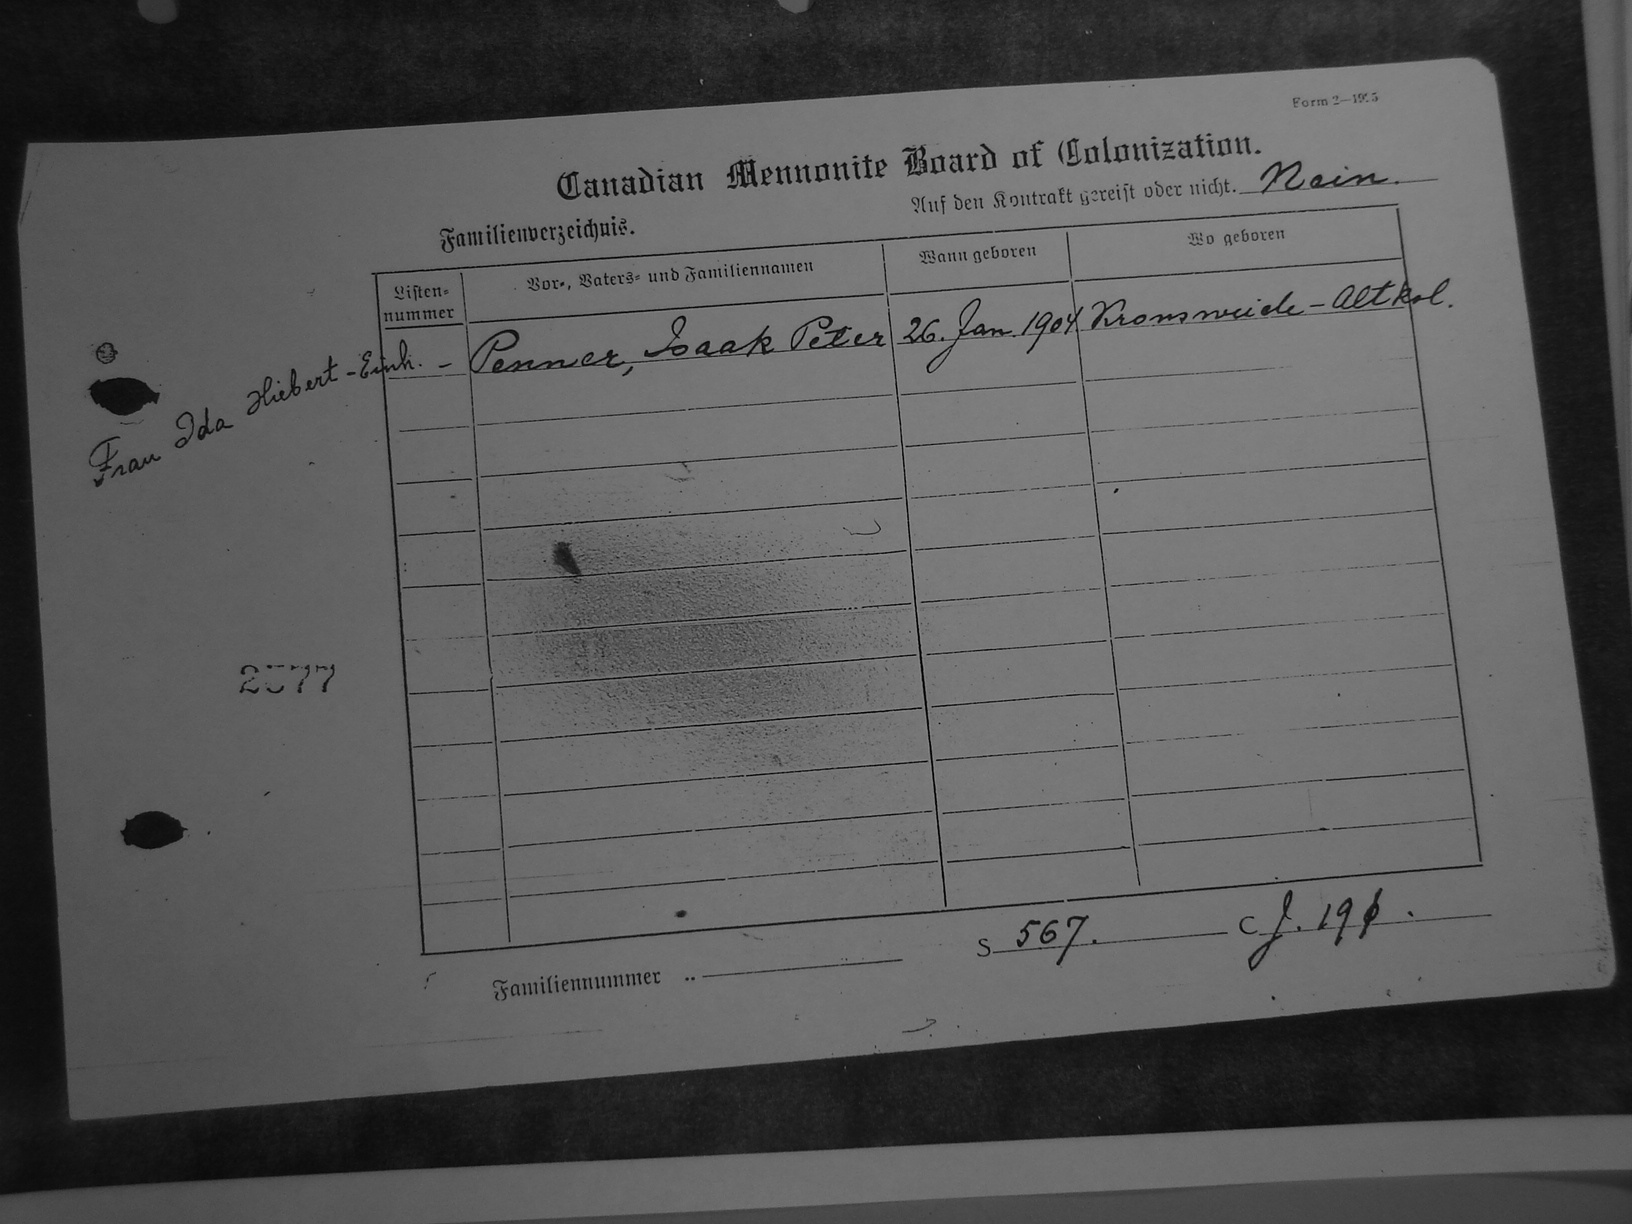 Form 2—1925
Canadian Mennonite Board of Colonization.
Auf den Kontrakt gereist oder nicht. Nein.
Familienverzeichnis.
Listen-
nummer
Vor-, Vaters- und Familiennamen
Wann geboren
Wo geboren
Frau Ida Hiebert - Einh. - Penner, Isaak Peter 26. Jan. 1904 Kronsweide - Altkol.
2577
Familiennummer ..
S 567.
C J. 19